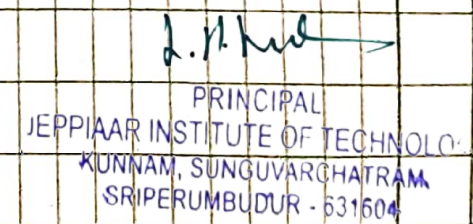 PRINCIPAL
JEPPIAAR INSTITUTE OF TECHNOLO
KUNNAM, SUNGUVARCHATRAM
SRIPERUMBUDUR - 631604